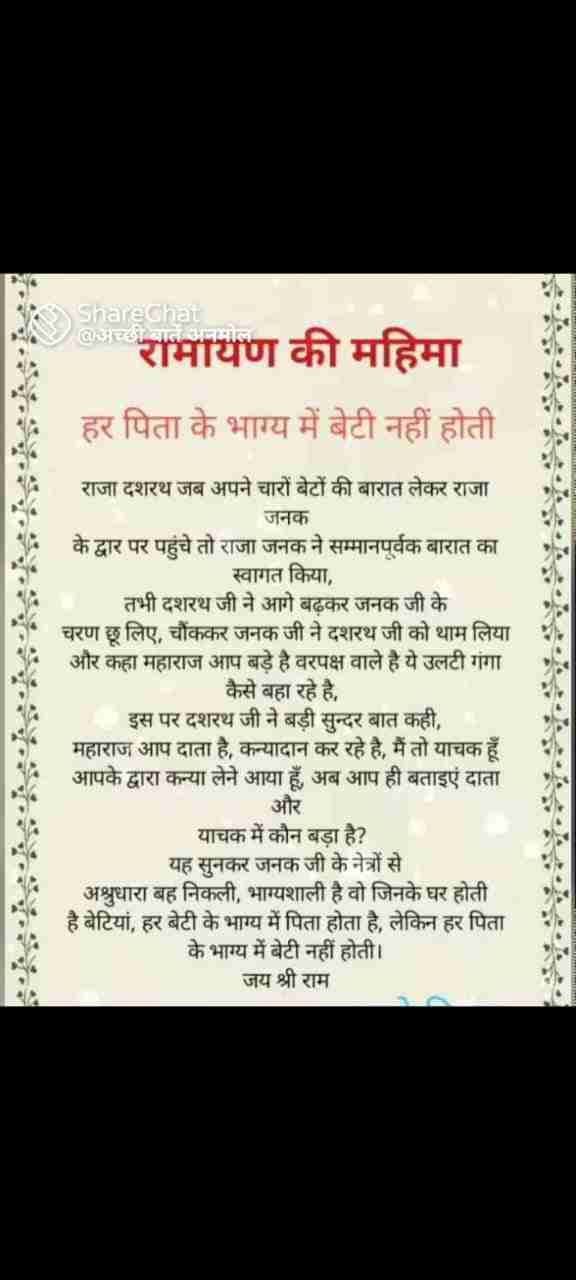 ShareChat
@अच्छी बातें अनमोल
रामायण की महिमा
हर पिता के भाग्य में बेटी नहीं होती
राजा दशरथ जब अपने चारों बेटों की बारात लेकर राजा
जनक
के द्वार पर पहुंचे तो राजा जनक ने सम्मानपूर्वक बारात का
स्वागत किया,
तभी दशरथ जी ने आगे बढ़कर जनक जी के
चरण छू लिए, चौंककर जनक जी ने दशरथ जी को थाम लिया
और कहा महाराज आप बड़े है वरपक्ष वाले है ये उलटी गंगा
कैसे बहा रहे है,
इस पर दशरथ जी ने बड़ी सुन्दर बात कही,
महाराज आप दाता है, कन्यादान कर रहे है, मैं तो याचक हूँ
आपके द्वारा कन्या लेने आया हूँ, अब आप ही बताइएं दाता
और
याचक में कौन बड़ा है?
यह सुनकर जनक जी के नेत्रों से
अश्रुधारा बह निकली, भाग्यशाली है वो जिनके घर होती
है बेटियां, हर बेटी के भाग्य में पिता होता है, लेकिन हर पिता
के भाग्य में बेटी नहीं होती।
जय श्री राम